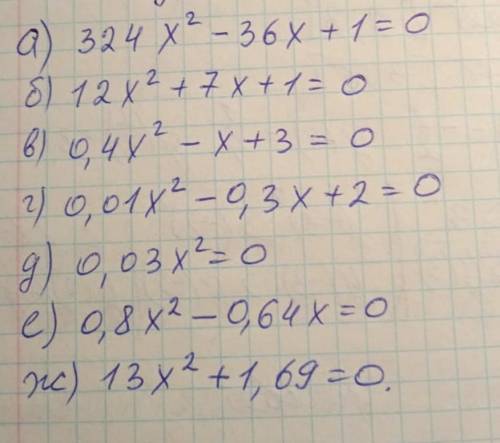 а) 324x² - 36x + 1 = 0
б) 12x² + 7x + 1 = 0
в) 0,4x² - x + 3 = 0
г) 0,01x² - 0,3x + 2 = 0
д) 0,03x² = 0
е) 0,8x² - 0,64x = 0
ж) 13x² + 1,69 = 0.